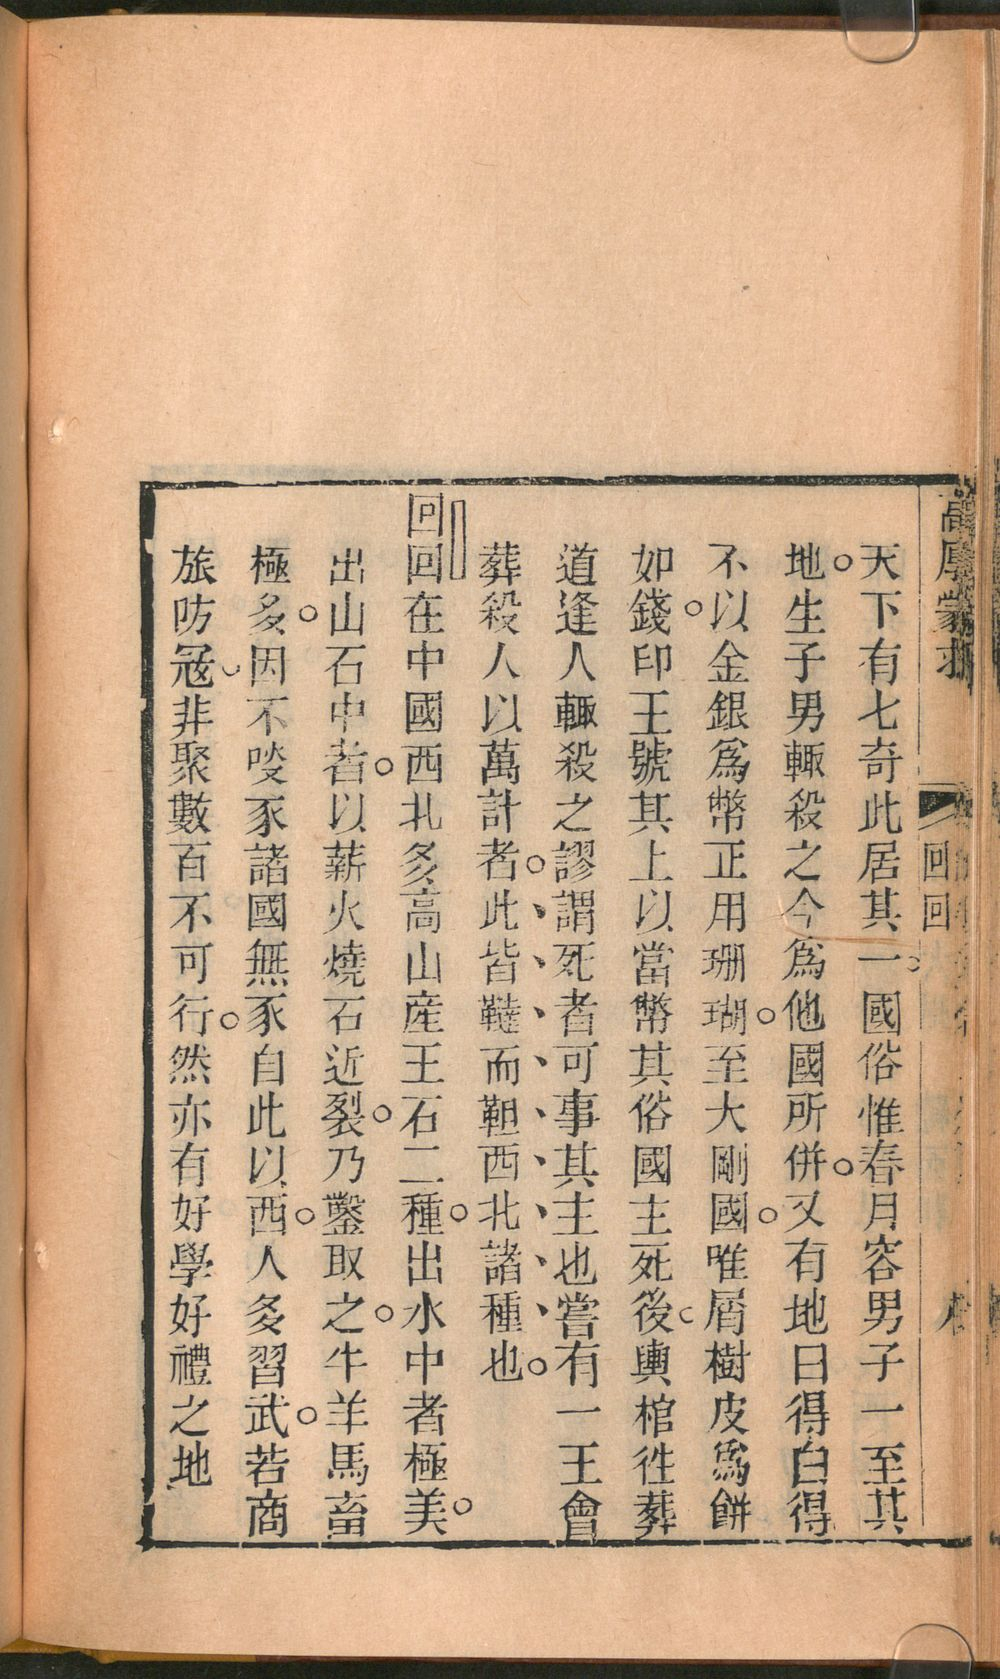 天下有七奇此居其一國俗惟春月容男子一至其
地生子男輙殺之今爲他國所併又有地曰得白得
不以金銀爲幣正用珊瑚至大剛國唯屑樹皮爲餅
如錢印王號其上以當幣其俗國主死後輿棺徃葬
道逢人輙殺之謬謂死者可事其主也嘗有一王會
葬殺人以萬計者此皆韃而靼西北諸種也
回回在中國西北多高山産王石二種出水中者極美
出山石中者以薪火燒石近裂乃鑿取之牛羊馬畜
極多因不啖豕諸國無豕自此以西人多習武若商
旅防冦非聚數百不可行然亦有好學好禮之地
回回